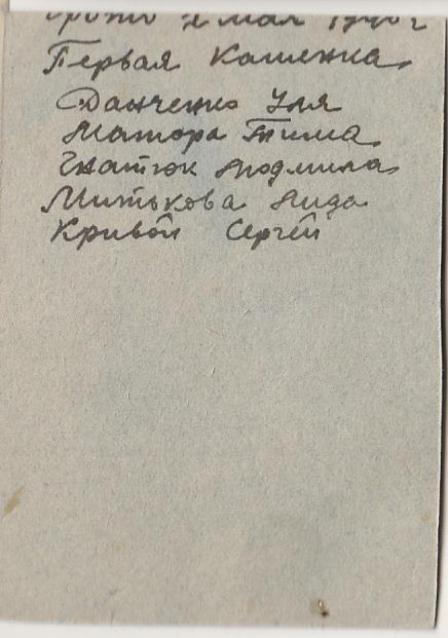 мая
Первая Каменка
Данченко Уля
Матора Тима
Гнатюк Людмила
Митькова Лида
Кривой Сергей